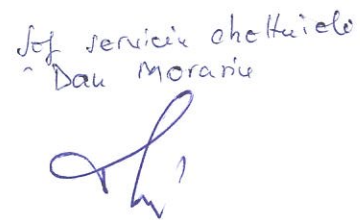 Șef serviciu cheltuieli
Dan Morariu